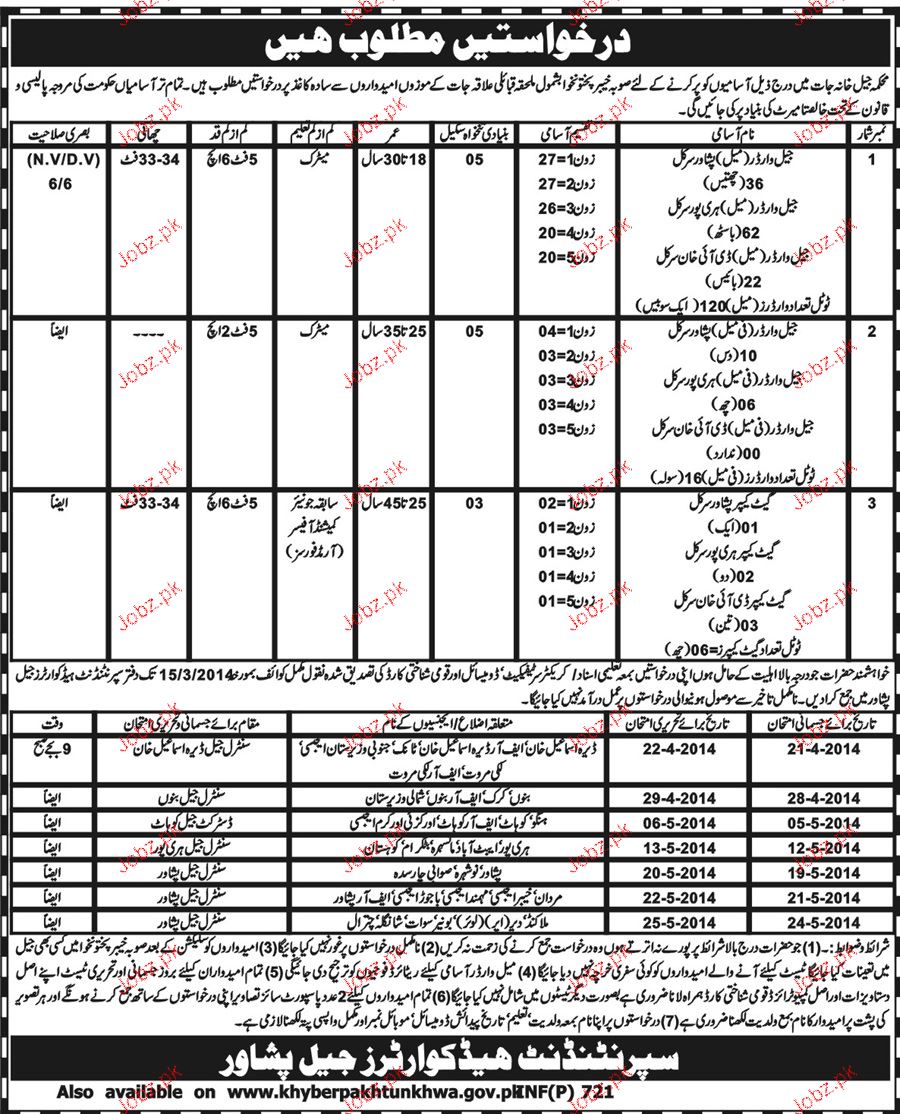 درخواستیں مطلوب ھیں
محکمہ جیل خانہ جات میں درج ذیل آسامیوں کو پر کرنے کے لئے صوبہ خیبر پختونخوا بشمول ملحقہ قبائلی علاقہ جات کے موزوں امیدواروں سے سادہ کاغذ پر درخواستیں مطلوب ہیں۔ تمام تر آسامیاں حکومت کی مروجہ پالیسی و
قانون کے تحت خالصتا میرٹ کی بنیاد پر کی جائیں گی۔
نمبر شمار نام آسامی تقسیم آسامی بنیادی تنخواہ سکیل عمر کم از کم تعلیم کم از کم قد چھاتی بصری صلاحیت
1 جیل وارڈر (میل) پشاور سرکل زون 1=27 05 18 تا 30 سال میٹرک 5 فٹ 6 انچ 33-34 فٹ (N.V/D.V)
36 (چھتیس) زون 2=27 6/6
جیل وارڈر (میل) ہری پور سرکل زون 3=26
62 (باسٹھ) زون 4=20
جیل وارڈر (میل) ڈی آئی خان سرکل زون 5=20
22 (بائیس)
ٹوٹل تعداد وارڈرز (میل) 120 (ایک سو بیس)
2 جیل وارڈر (فی میل) پشاور سرکل زون 1=04 05 25 تا 35 سال میٹرک 5 فٹ 2 انچ ---- ایضاً
10 (دس) زون 2=03
جیل وارڈر (فی میل) ہری پور سرکل زون 3=03
06 (چھ) زون 4=03
جیل وارڈر (فی میل) ڈی آئی خان سرکل زون 5=03
00 (ندارد)
ٹوٹل تعداد وارڈرز (فی میل) 16 (سولہ)
3 گیٹ کیپر پشاور سرکل زون 1=02 03 25 تا 45 سال سابقہ جونیئر 5 فٹ 6 انچ 33-34 فٹ ایضاً
01 (ایک) زون 2=01 کمیشنڈ آفیسر
گیٹ کیپر ہری پور سرکل زون 3=01 (آرمڈ فورسز)
02 (دو) زون 4=01
گیٹ کیپر ڈی آئی خان سرکل زون 5=01
03 (تین)
ٹوٹل تعداد گیٹ کیپرز=06 (چھ)
خواہشمند حضرات جو درجہ بالا اہلیت کے حامل ہوں اپنی درخواستیں بمعہ تعلیمی اسناد/ کریکٹر سرٹیفکیٹ، ڈومیسائل اور قومی شناختی کارڈ کی تصدیق شدہ نقول مکمل کوائف بمورخہ 15/3/2014 تک دفتر سپرنٹنڈنٹ ہیڈ کوارٹرز جیل
پشاور میں جمع کرادیں۔ نامکمل تاخیر سے موصول ہونیوالی درخواستوں پر عمل درآمد نہیں کیا جائیگا۔
تاریخ برائے جسمانی امتحان تاریخ برائے تحریری امتحان متعلقہ اضلاع/ایجنسیوں کے نام مقام برائے جسمانی و تحریری امتحان وقت
21-4-2014 22-4-2014 ڈیرہ اسماعیل خان، ایف آر ڈیرہ اسماعیل خان، ٹانک، جنوبی وزیرستان ایجنسی، سنٹرل جیل ڈیرہ اسماعیل خان 9 بجے صبح
لکی مروت، ایف آر لکی مروت
28-4-2014 29-4-2014 بنوں، کرک، ایف آر بنوں، شمالی وزیرستان سنٹرل جیل بنوں ایضاً
05-5-2014 06-5-2014 ہنگو، کوہاٹ، ایف آر کوہاٹ، اورکزئی اور کرم ایجنسی ڈسٹرکٹ جیل کوہاٹ ایضاً
12-5-2014 13-5-2014 ہری پور، ایبٹ آباد، مانسہرہ، بٹگرام، کوہستان سنٹرل جیل ہری پور ایضاً
19-5-2014 20-5-2014 پشاور، نوشہرہ، صوابی، چارسدہ سنٹرل جیل پشاور ایضاً
21-5-2014 22-5-2014 مردان، خیبر ایجنسی، مہمند ایجنسی، باجوڑ ایجنسی، ایف آر پشاور سنٹرل جیل پشاور ایضاً
24-5-2014 25-5-2014 ملاکنڈ، دیر (اپر) (لوئر)، بونیر، سوات، شانگلہ، چترال سنٹرل جیل پشاور ایضاً
شرائط و ضوابط:۔ (1) جو حضرات درج بالا شرائط پر پورے نہ اترتے ہوں وہ درخواست جمع کرنے کی زحمت نہ کریں (2) نامکمل درخواستوں پر غور نہیں کیا جائیگا (3) امیدواروں کو سلیکشن کے بعد صوبہ خیبر پختونخوا میں کسی بھی جیل
میں تعینات کیا جائیگا ٹیسٹ کیلئے آنے والے امیدواروں کو کوئی سفری خرچہ نہیں دیا جائیگا (4) میل وارڈر آسامی کیلئے ریٹائرڈ فوجیوں کو ترجیح دی جائیگی (5) تمام امیدواران کیلئے بروز جسمانی اور تحریری ٹیسٹ اپنے اصل
دستاویزات اور اصل کمپیوٹرائزڈ قومی شناختی کارڈ ہمراہ لانا ضروری ہے بصورت دیگر ٹیسٹوں میں شامل نہیں کیا جائیگا (6) تمام امیدواروں کیلئے 2 عدد پاسپورٹ سائز تصاویر اپنی درخواستوں کے ساتھ جمع کرنے ہونگے اور ہر تصویر
کی پشت پر امیدوار کا نام بمع ولدیت لکھنا ضروری ہے (7) درخواستوں پر اپنا نام بمعہ ولدیت، تعلیم، تاریخ پیدائش، ڈومیسائل، موبائل نمبر اور مکمل واپسی پتہ لکھنا لازمی ہے۔
سپرنٹنڈنٹ ھیڈکوارٹرز جیل پشاور
Also available on www.khyberpakhtunkhwa.gov.pk INF(P) 721